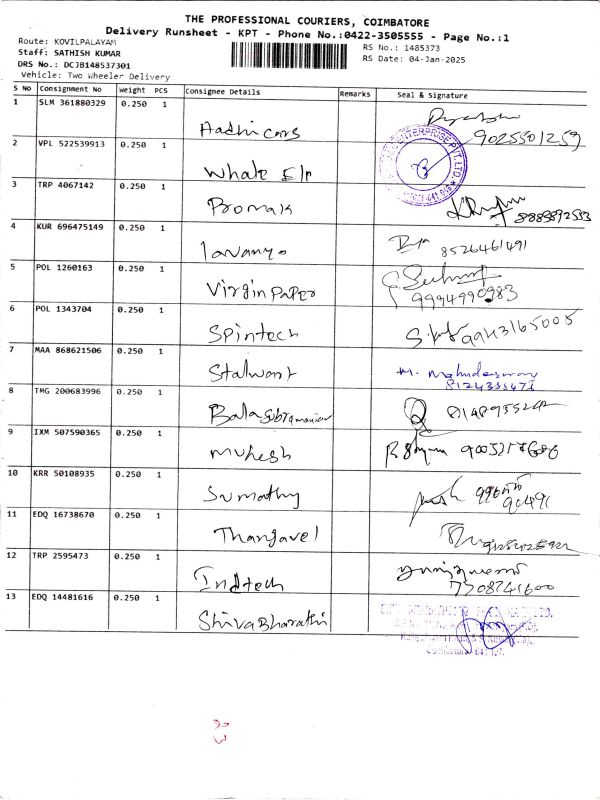 THE PROFESSIONAL COURIERS, COIMBATORE
Delivery Runsheet - KPT - Phone No.:0422-3505555 - Page No.:1
Route: KOVILPALAYAM
RS No.: 1485373
Staff: SATHISH KUMAR
RS Date: 04-Jan-2025
DRS No.: DCJB148537301
Vehicle: Two Wheeler Delivery
S No Consignment No Weight PCS Consignee Details Remarks Seal & Signature
1 SLM 361880329 0.250 1 Aadhi cars 9025501259
2 VPL 522539913 0.250 1 Whale Elr
3 TRP 4067142 0.250 1 Bromark
4 KUR 696475149 0.250 1 lavanya 8526461491
5 POL 1260163 0.250 1 Virgin Paper 9994990983
6 POL 1343704 0.250 1 Spintech 9943165005
7 MAA 868621506 0.250 1 Stalwart
8 TMG 200683996 0.250 1 Balasubramaniam
9 IXM 507590365 0.250 1 Mukesh
10 KRR 50108935 0.250 1 Sumathy
11 EDQ 16738670 0.250 1 Thangavel
12 TRP 2595473 0.250 1 Indtech 7708741600
13 EDQ 14481616 0.250 1 Shiva Bharathi